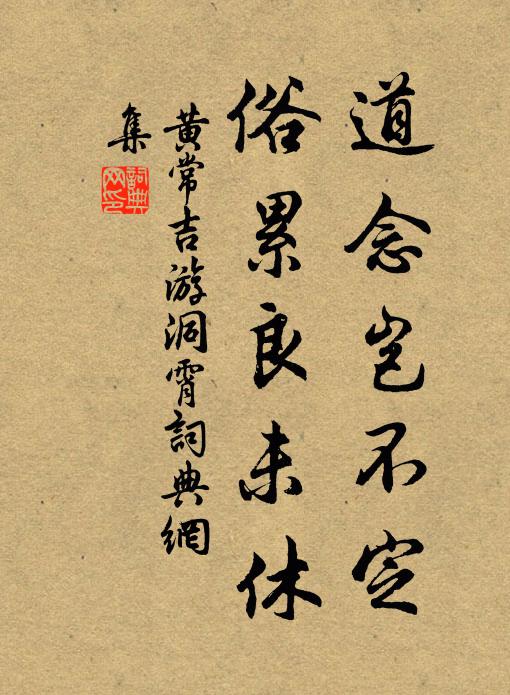 道念岂不定
俗累良未休
黄常吉游洞霄詞典網
集
詞典
网印